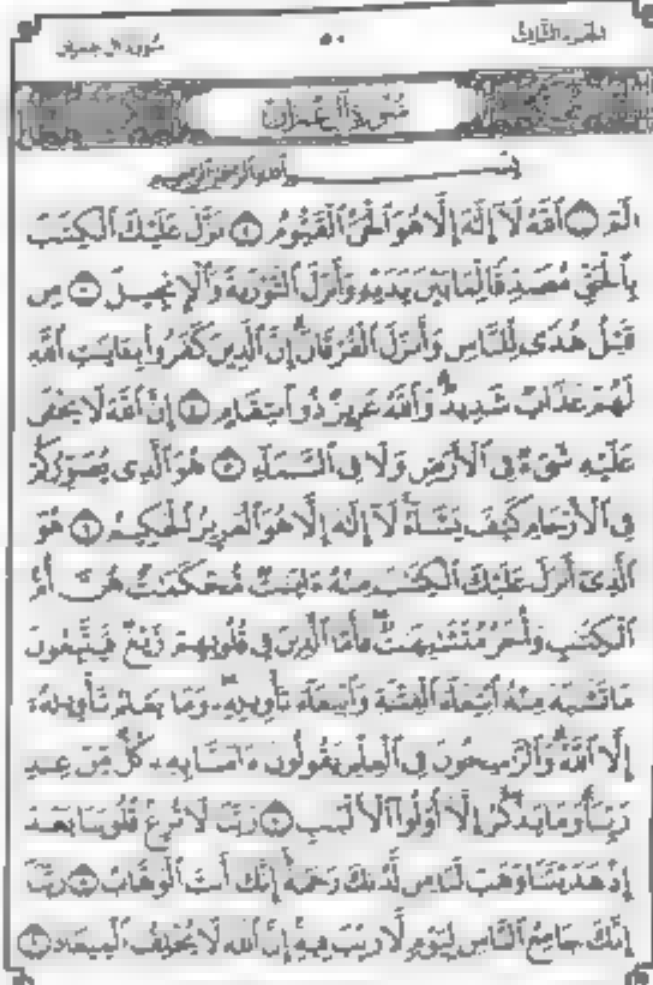 الجزء الثالث ٥٠ سورة آل عمران
سُورَةُ آلِ عِمْرَانَ
بِسْمِ اللَّهِ الرَّحْمَٰنِ الرَّحِيمِ
الٓمٓ ١ ٱللَّهُ لَآ إِلَٰهَ إِلَّا هُوَ ٱلْحَىُّ ٱلْقَيُّومُ ٢ نَزَّلَ عَلَيْكَ ٱلْكِتَٰبَ
بِٱلْحَقِّ مُصَدِّقًا لِّمَا بَيْنَ يَدَيْهِ وَأَنزَلَ ٱلتَّوْرَىٰةَ وَٱلْإِنجِيلَ ٣ مِن
قَبْلُ هُدًى لِّلنَّاسِ وَأَنزَلَ ٱلْفُرْقَانَ إِنَّ ٱلَّذِينَ كَفَرُوا۟ بِـَٔايَٰتِ ٱللَّهِ
لَهُمْ عَذَابٌ شَدِيدٌ وَٱللَّهُ عَزِيزٌ ذُو ٱنتِقَامٍ ٤ إِنَّ ٱللَّهَ لَا يَخْفَىٰ
عَلَيْهِ شَىْءٌ فِى ٱلْأَرْضِ وَلَا فِى ٱلسَّمَآءِ ٥ هُوَ ٱلَّذِى يُصَوِّرُكُمْ
فِى ٱلْأَرْحَامِ كَيْفَ يَشَآءُ لَآ إِلَٰهَ إِلَّا هُوَ ٱلْعَزِيزُ ٱلْحَكِيمُ ٦ هُوَ
ٱلَّذِىٓ أَنزَلَ عَلَيْكَ ٱلْكِتَٰبَ مِنْهُ ءَايَٰتٌ مُّحْكَمَٰتٌ هُنَّ أُمُّ
ٱلْكِتَٰبِ وَأُخَرُ مُتَشَٰبِهَٰتٌ فَأَمَّا ٱلَّذِينَ فِى قُلُوبِهِمْ زَيْغٌ فَيَتَّبِعُونَ
مَا تَشَٰبَهَ مِنْهُ ٱبْتِغَآءَ ٱلْفِتْنَةِ وَٱبْتِغَآءَ تَأْوِيلِهِۦ وَمَا يَعْلَمُ تَأْوِيلَهُۥٓ
إِلَّا ٱللَّهُ وَٱلرَّٰسِخُونَ فِى ٱلْعِلْمِ يَقُولُونَ ءَامَنَّا بِهِۦ كُلٌّ مِّنْ عِندِ
رَبِّنَا وَمَا يَذَّكَّرُ إِلَّآ أُو۟لُوا۟ ٱلْأَلْبَٰبِ ٧ رَبَّنَا لَا تُزِغْ قُلُوبَنَا بَعْدَ
إِذْ هَدَيْتَنَا وَهَبْ لَنَا مِن لَّدُنكَ رَحْمَةً إِنَّكَ أَنتَ ٱلْوَهَّابُ ٨ رَبَّنَآ
إِنَّكَ جَامِعُ ٱلنَّاسِ لِيَوْمٍ لَّا رَيْبَ فِيهِ إِنَّ ٱللَّهَ لَا يُخْلِفُ ٱلْمِيعَادَ ٩